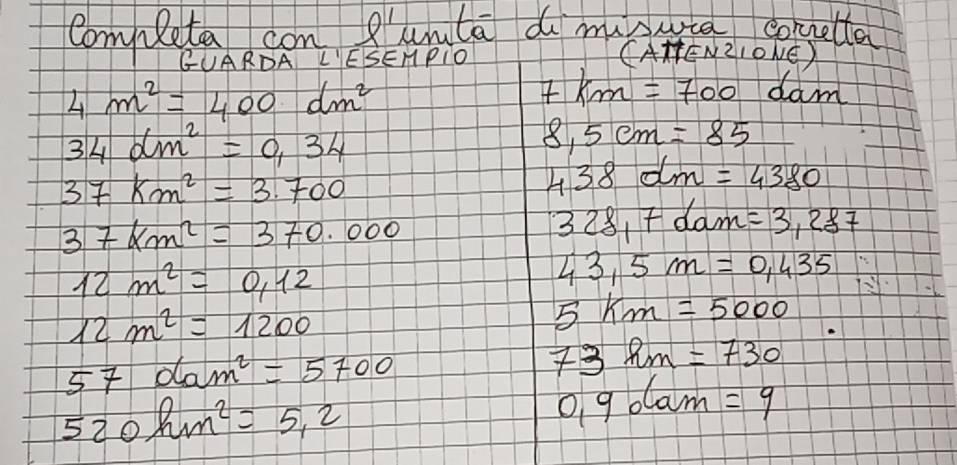 Completa con l'unità di misura corretta
GUARDA L'ESEMPIO
(ATTENZIONE)
4 m² = 400 dm²
34 dm² = 0,34
37 Km² = 3.700
37 Km² = 370.000
12 m² = 0,12
12 m² = 1200
57 dam² = 5700
520 hm² = 5,2
7 Km = 700 dam
8,5 cm = 85
438 dm = 4380
328,7 dam = 3,287
43,5 m = 0,435
5 Km = 5000
73 hm = 730
0,9 dam = 9